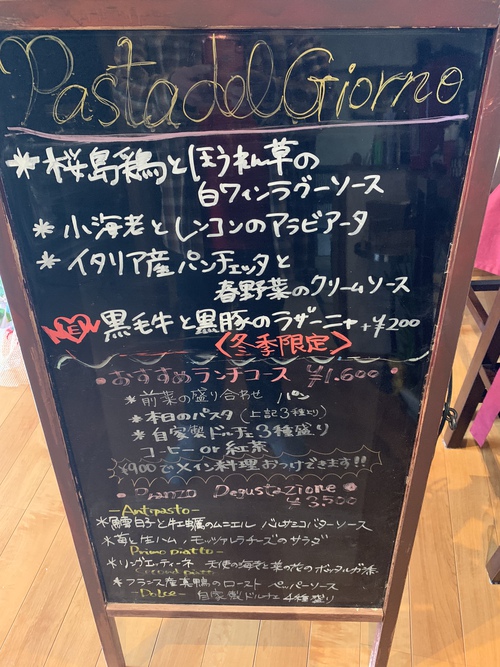 Pasta del Giorno
* 桜島鶏とほうれん草の
白ワインラグーソース
* 小海老とレンコンのアラビアータ
* イタリア産パンチェッタと
春野菜のクリームソース
NEW 黒毛牛と黒豚のラザーニャ +¥200
〈冬季限定〉
• おすすめランチコース ¥1.600 •
* 前菜の盛り合わせ パン
* 本日のパスタ (上記3種より)
* 自家製ドルチェ3種盛り
コーヒー or 紅茶
¥900でメイン料理おつけできます!!
• Pranzo Degustazione •
¥3,500
-Antipasto-
*鱈白子と牡蠣のムニエル バルサミコバターソース
*苺と生ハム、モッツァレラチーズのサラダ
Primo piatto-
*リングエッティーネ 天使の海老と菜の花のボッタルガ添
Secondo piatto-
* フランス産真鴨のロースト ペッパーソース
-Dolce- 自家製ドルチェ4種盛り